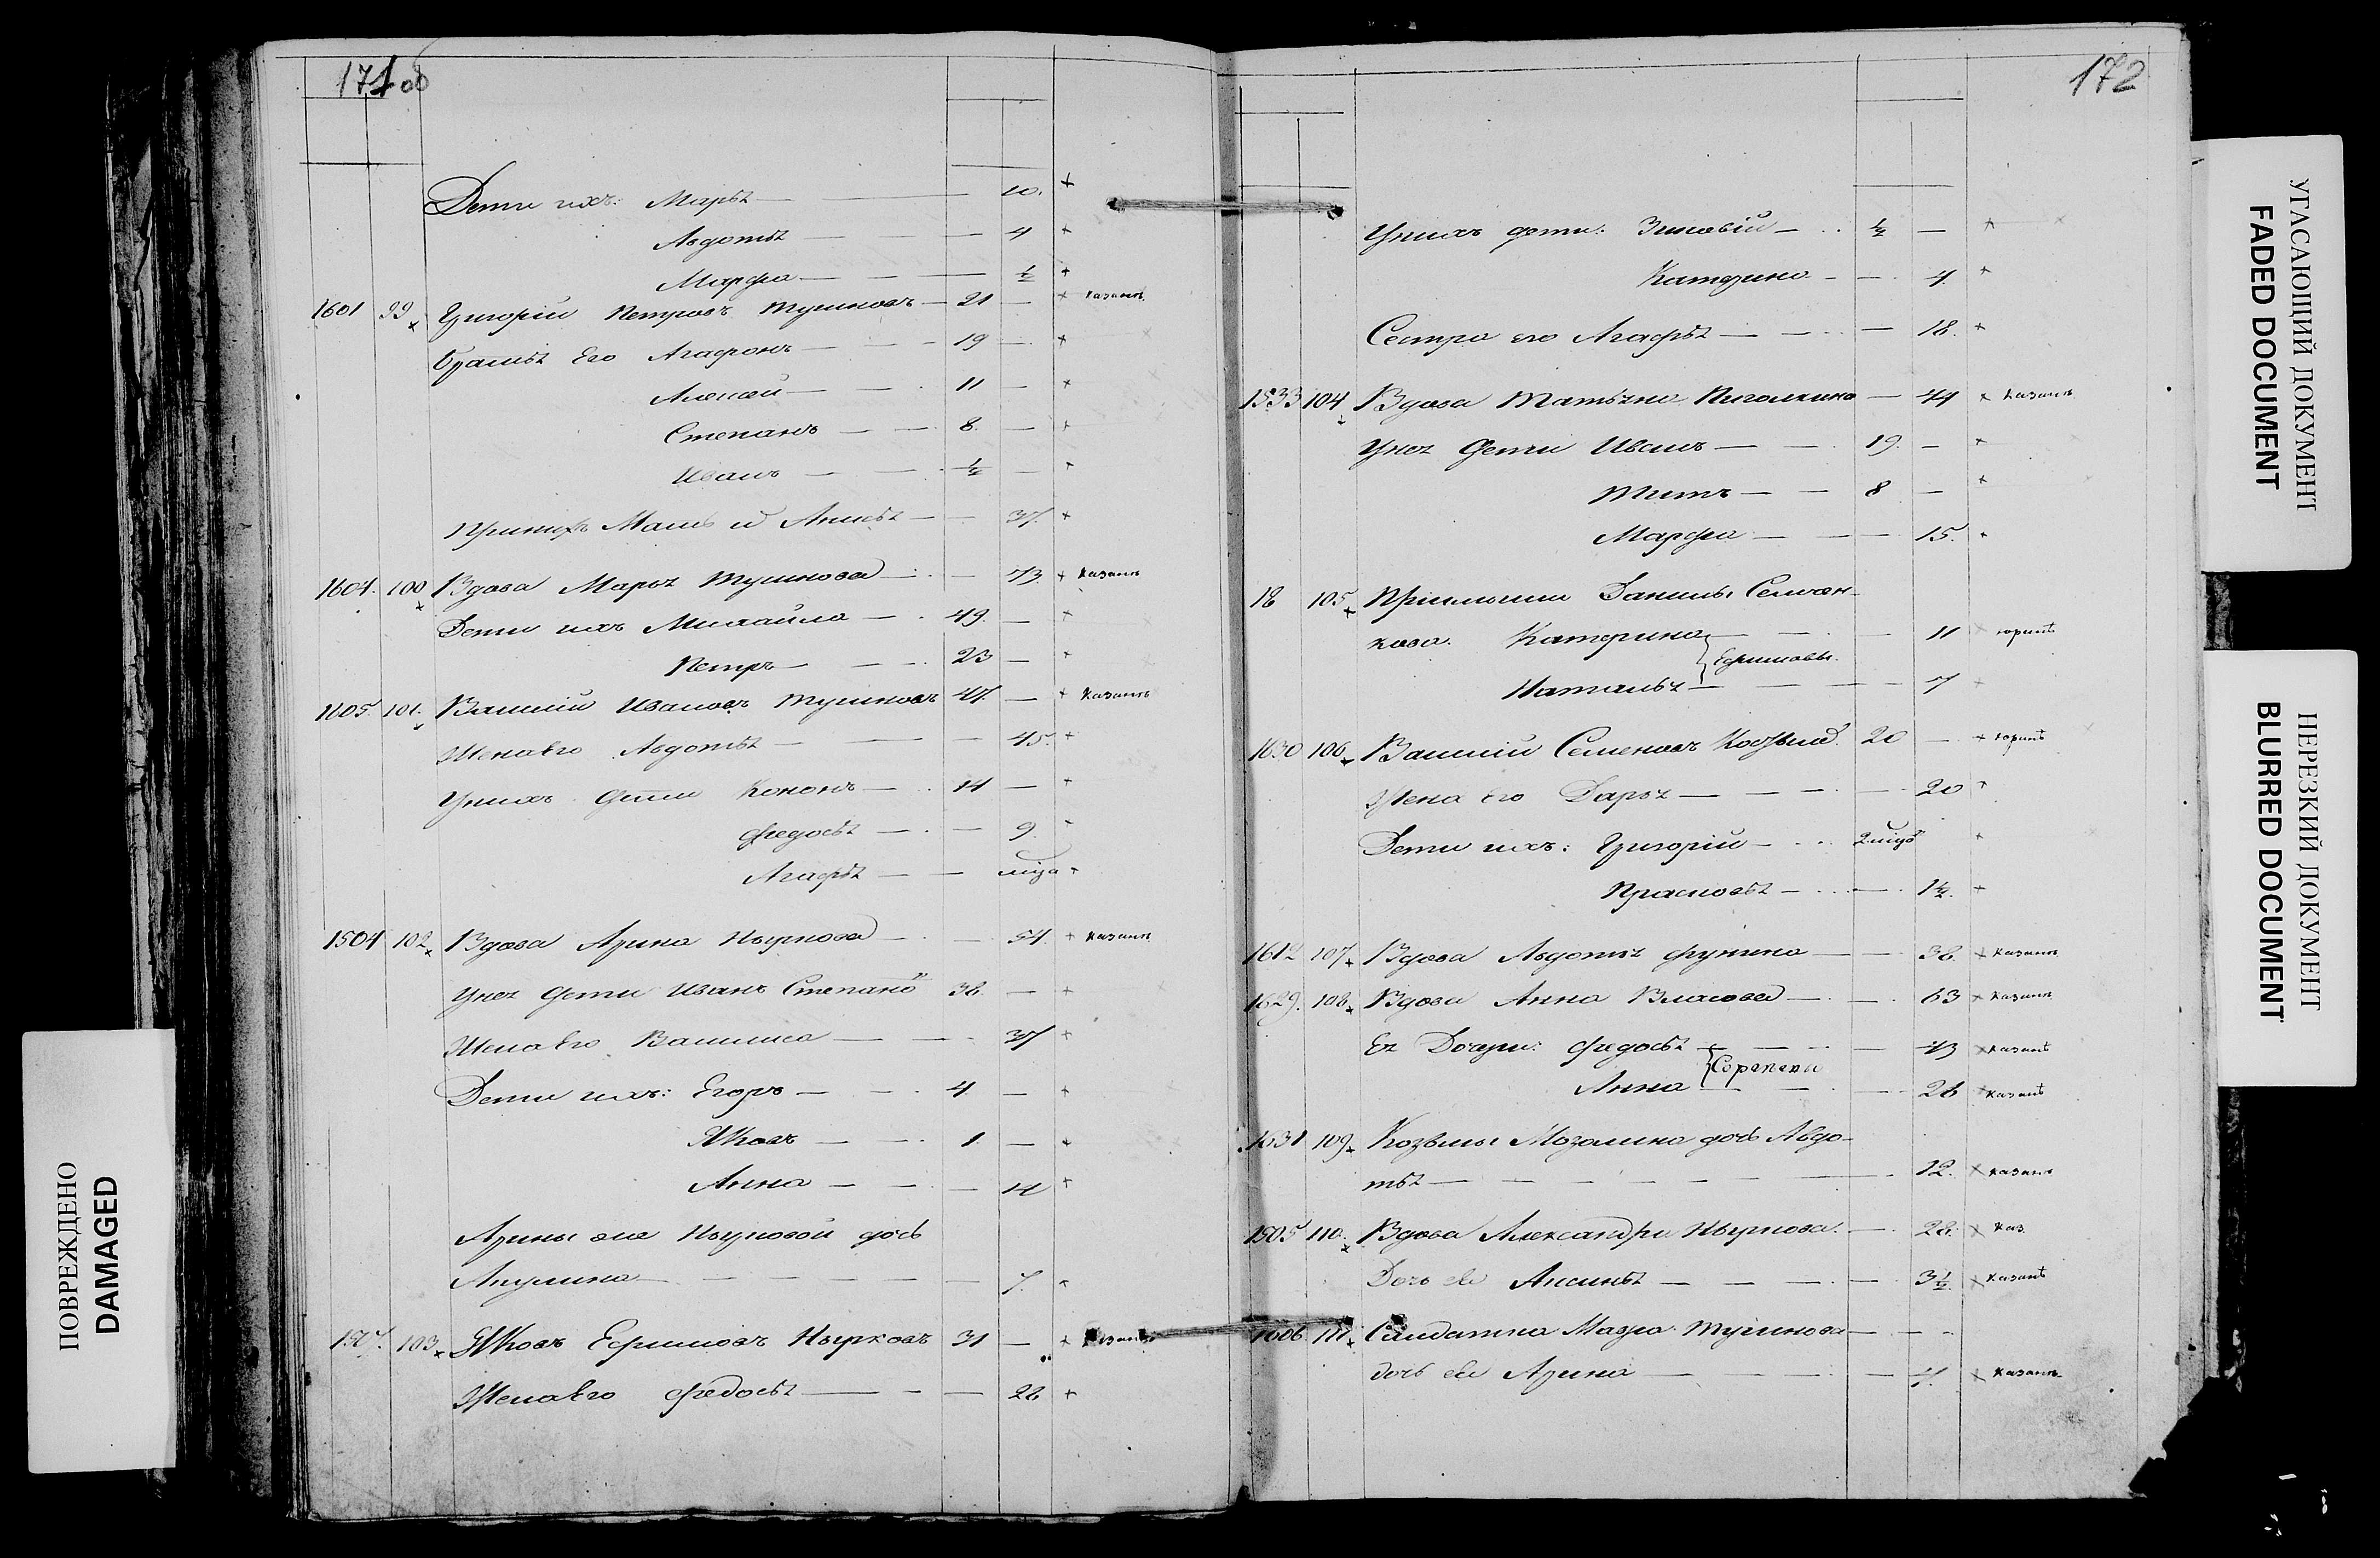 171 об
Дети ихъ: Марья — 10. +
Авдотья — 4 +
Марфа — ½ +
1601 99 Григорій Петровъ Тушновъ — 21 — + казакъ
братья Его Агафонъ — 19 — +
Алексей — 11 — +
Степанъ — 8. — +
Иванъ — ½ — +
При нихъ Мать Анисья — 37. +
1604. 100 Вдова Марья Тушнова — 73. + казакъ
Дети ихъ Михайла — 49. — +
Петръ — 23 — +
1605. 101. Василій Ивановъ Тушновъ 47. — + казакъ
Жена Его Авдотья — 45. +
У нихъ дети Кононъ — 14 — +
Федосья — 9. +
Агафья — +
1504 102 Вдова Арина Нырнова — 54. + казакъ
У нея дети Иванъ Степано 38. — +
Жена Его Василиса — 37 +
Дети ихъ: Егоръ — 4. — +
Яковъ — 1. — +
Анна — 14 +
Арины Нырновой дочь
Акулина — 7. +
103 Яковъ Ефимовъ Нырковъ 31 — +
Жена Его Федосья — 28 +
172
У нихъ дети: Зиновій — ½ — +
Катерина — 4. +
Сестра его Агафья — 18. +
1533 104 Вдова Татьяна Пигалкина — 44 + казакъ
У нея дети Иванъ — 19. — +
Титъ — 8 — +
Марфа — 15. +
16 105 Данилы Семен-
кова. Катерина — 11
Ефимовы.
Наталья — 7
1630 106 Василій Семеновъ 20 — +
Жена Его Дарья — 20 +
Дети ихъ: Григорій — +
Прасковья — 1½. +
1612 107 Вдова Авдотья Фунтина — 38. + казакъ
1629. 108 Вдова Анна Власова — 63 + казакъ
Ея Дочери: Федосья — 43 + казакъ
Анна — 26 казакъ
1631 109 Козьмы Мозолина дочь Авдо-
тья — 12. + казакъ
1505 110. Вдова Александра Нырнова. — 28. + каз.
Дочь ея Аксинья — 3½ + казакъ
1606. 111. Солдатка Мавра Тушнова —
дочь ея Арина — 4. + казакъ
ПОВРЕЖДЕНО
DAMAGED
УГАСАЮЩИЙ ДОКУМЕНТ
FADED DOCUMENT
НЕРЕЗКИЙ ДОКУМЕНТ
BLURRED DOCUMENT